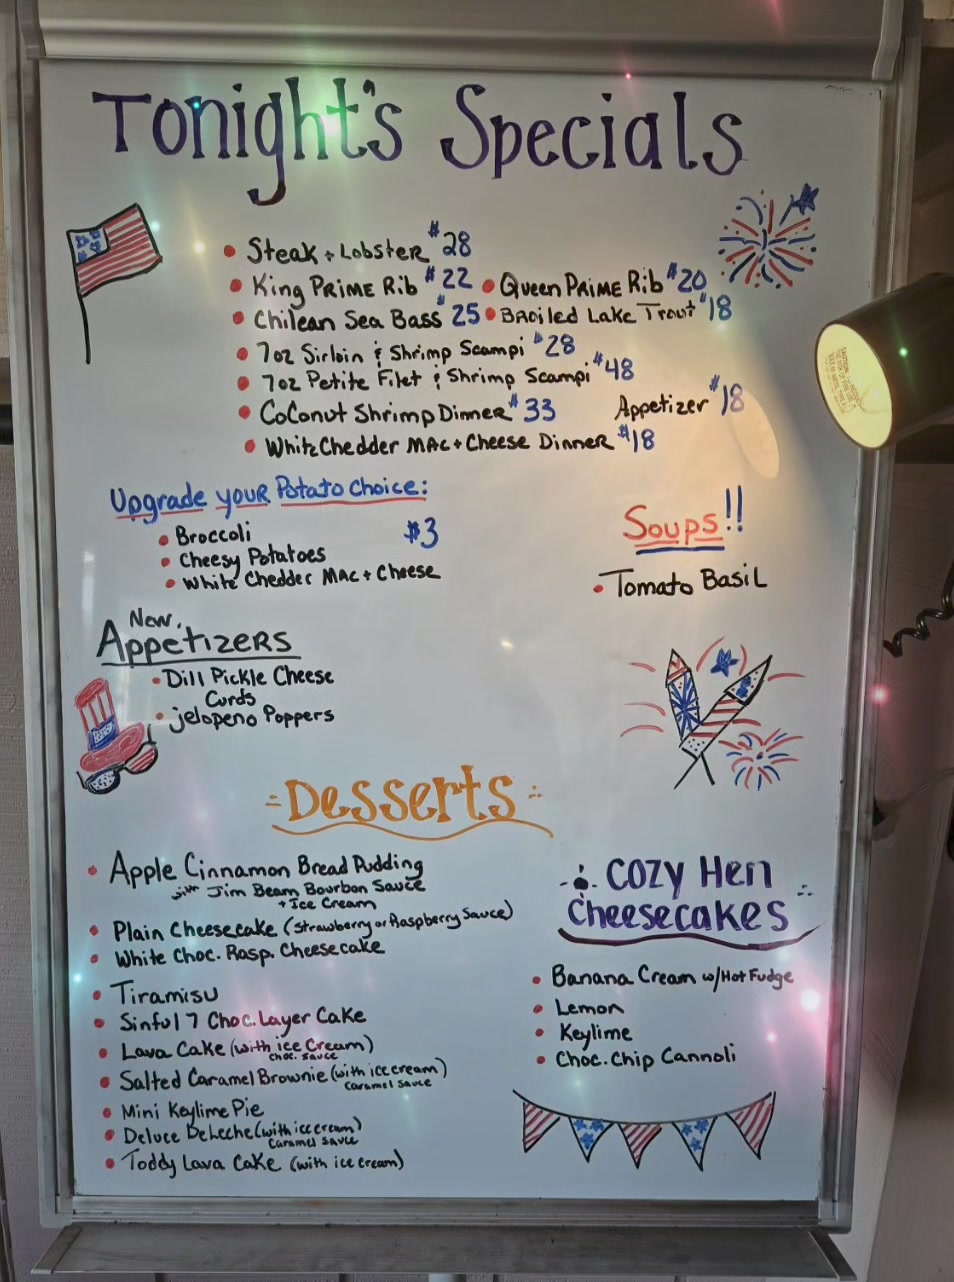 Tonight's Specials
• Steak + Lobster $28
• King Prime Rib $22 • Queen Prime Rib $20
• Chilean Sea Bass $25 • Broiled Lake Trout $18
• 7oz Sirloin & Shrimp Scampi $28
• 7oz Petite Filet & Shrimp Scampi $48
• Coconut Shrimp Dinner $33 Appetizer $18
• White Chedder Mac + Cheese Dinner $18
Upgrade your Potato Choice:
• Broccoli $3
• Cheesy Potatoes
• White Chedder Mac + Cheese
Soups!!
• Tomato Basil
New
Appetizers
• Dill Pickle Cheese
Curds
• jelopeno Poppers
Desserts
• Apple Cinnamon Bread Pudding
with Jim Beam Bourbon Sauce
+ Ice Cream
• Plain Cheesecake (Strawberry or Raspberry Sauce)
• White Choc. Rasp. Cheesecake
• Tiramisu
• Sinful 7 Choc. Layer Cake
• Lava Cake (with ice Cream)
choc. sauce
• Salted Caramel Brownie (with ice cream)
caramel sauce
• Mini Keylime Pie
• Deluce DeLeche (with ice cream)
Caramel sauce
• Toddy Lava Cake (with ice cream)
Cozy Hen
Cheesecakes
• Banana Cream w/Hot Fudge
• Lemon
• Keylime
• Choc. Chip Cannoli